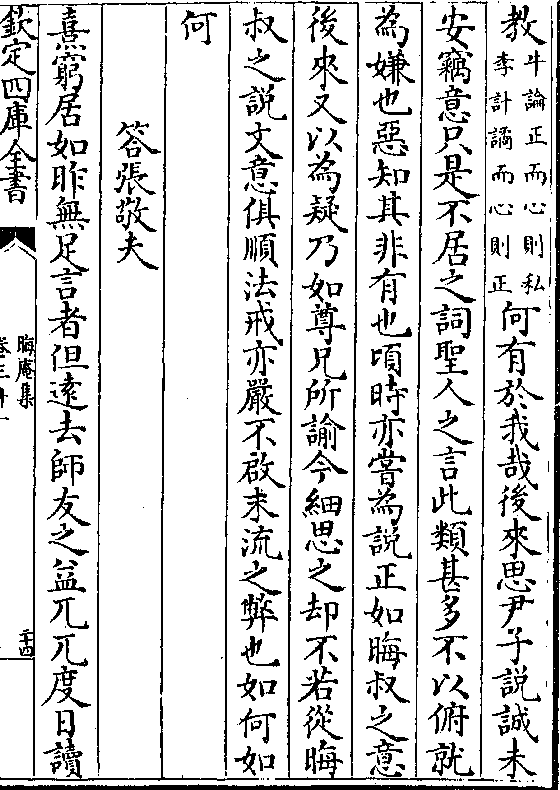 教牛論正而心則私
李計譎而心則正何有於我哉後來思尹子説誠未
安竊意只是不居之詞聖人之言此類甚多不以俯就
為嫌也惡知其非有也頃時亦嘗為説正如晦叔之意
後來又以為疑乃如尊兄所諭今細思之却不若從晦
叔之説文意俱順法戒亦嚴不啟末流之弊也如何如
何
答張敬夫
熹窮居如昨無足言者但逺去師友之益兀兀度日讀
欽定四庫全書
晦庵集
卷三十一
二十四